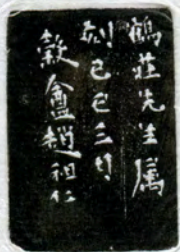 鶴莊先生属
刻己巳三月
穀盦趙祖仁